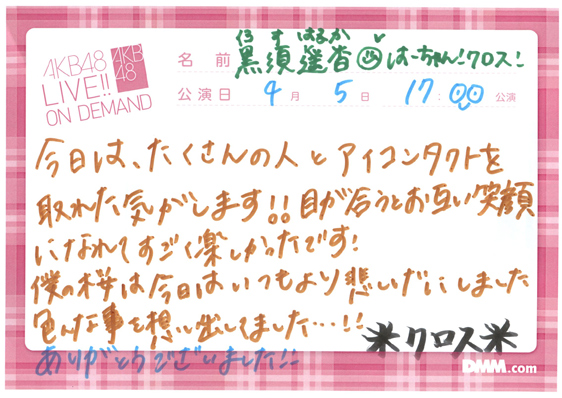 くろ す はるか
AKB48
LIVE!!
ON DEMAND
AKB
48
名前 黒須遥香 はーちゃん!クロス!
公演日 4月 5日 17:00 公演
今日は、たくさんの人とアイコンタクトを
取れた気がします!!目が合うとお互い笑顔
になれてすごく楽しかったです!
僕の桜は今日はいつもより悲しいだにしました
色んな事を想い出してました…!!
ありがとうございました!!
*クロス*
DMM.com